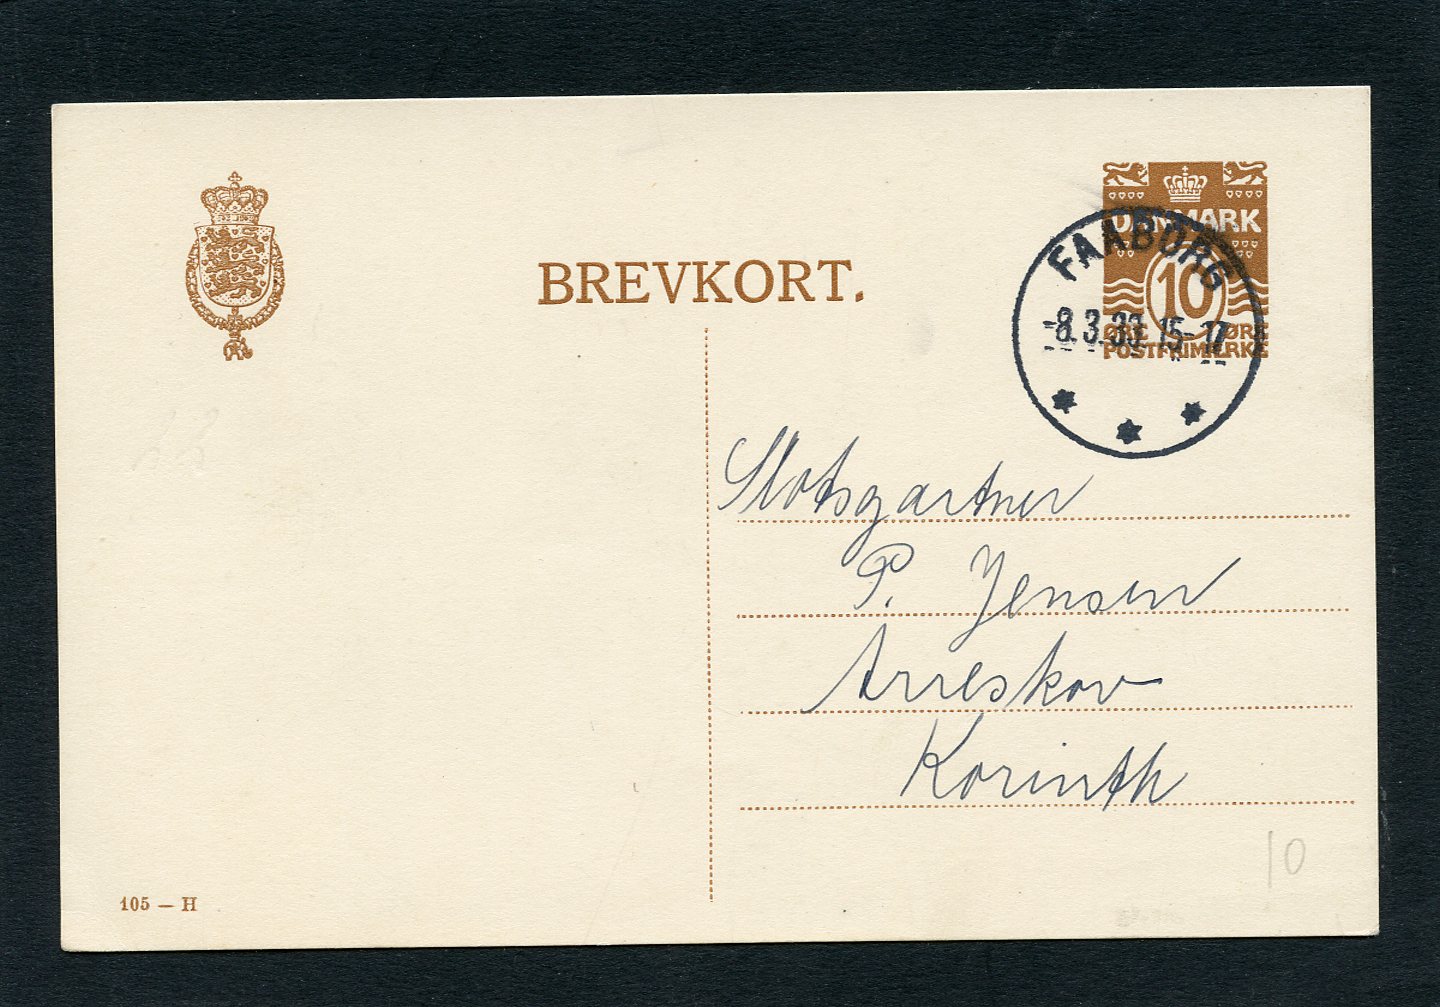 BREVKORT.
DANMARK
10
ØRE ØRE
POSTFRIMÆRKE
FAABORG
-8.3.33. 15-17
Slotsgartner
P. Jensen
Arreskov
Korinth
10
105 — H